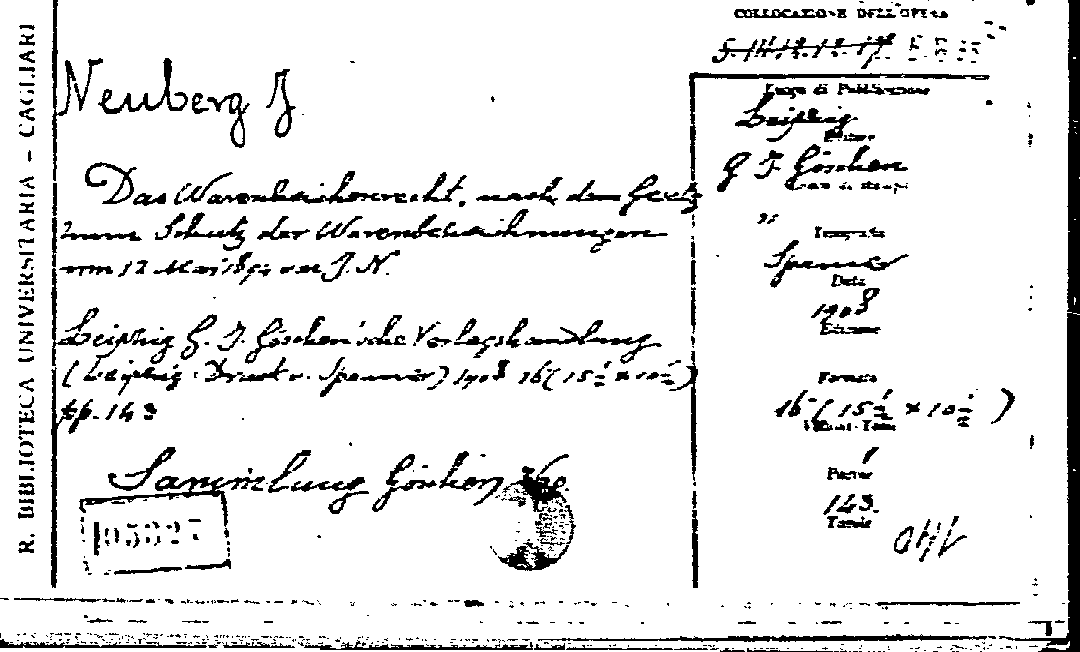 R. BIBLIOTECA UNIVERSITARIA - CAGLIARI
COLLOCAZIONE DELL'OPERA
Neuberg J
Das Warenzeichenrecht, nach dem Gesetz
zum Schutz der Warenbezeichnungen
vom 12 Mai 1894 von J. N.
Leipzig G. J. Göschen'sche Verlagshandlung
(Leipzig. Druck v. Spamer) 1908 16(15½ × 10½)
pp. 143
Sammlung Göschen
105327
Luogo di Pubblicazione
Leipzig
Editore
G J. Göschen
Luogo di stampa
"
Tipografo
Spamer
Data
1908
Edizione
Formato
16 (15½ × 10½ )
Volumi-Tomi
1
Pagine
143.
Tavole